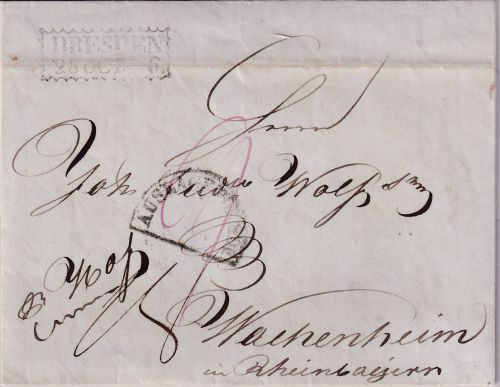 DRESDEN
28 OCT 6
Herrn
Joh Ludw Wolf Senr
AUSLAGE
Wachenheim
in Rheinbaiern